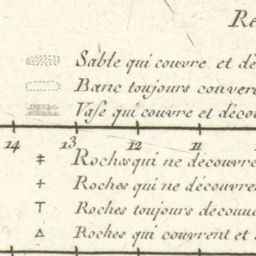 Re
Sable qui couvre et dé
Banc toujours couver
Vase qui couvre et décou
14 13 12 11
Roches qui ne decouvre
Roches qui ne découvren
Roches toujours decouv
Roches qui couvrent et